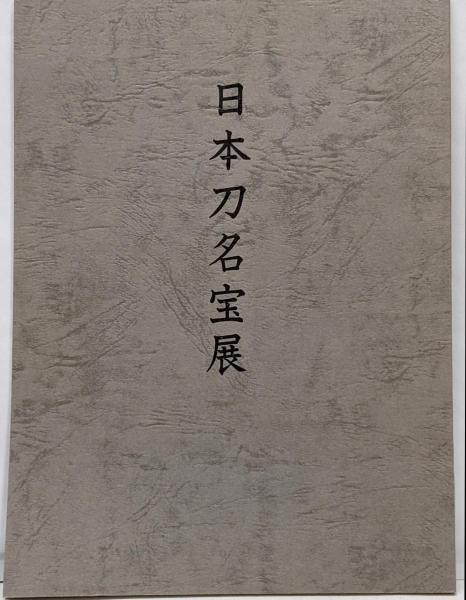 日本刀名宝展